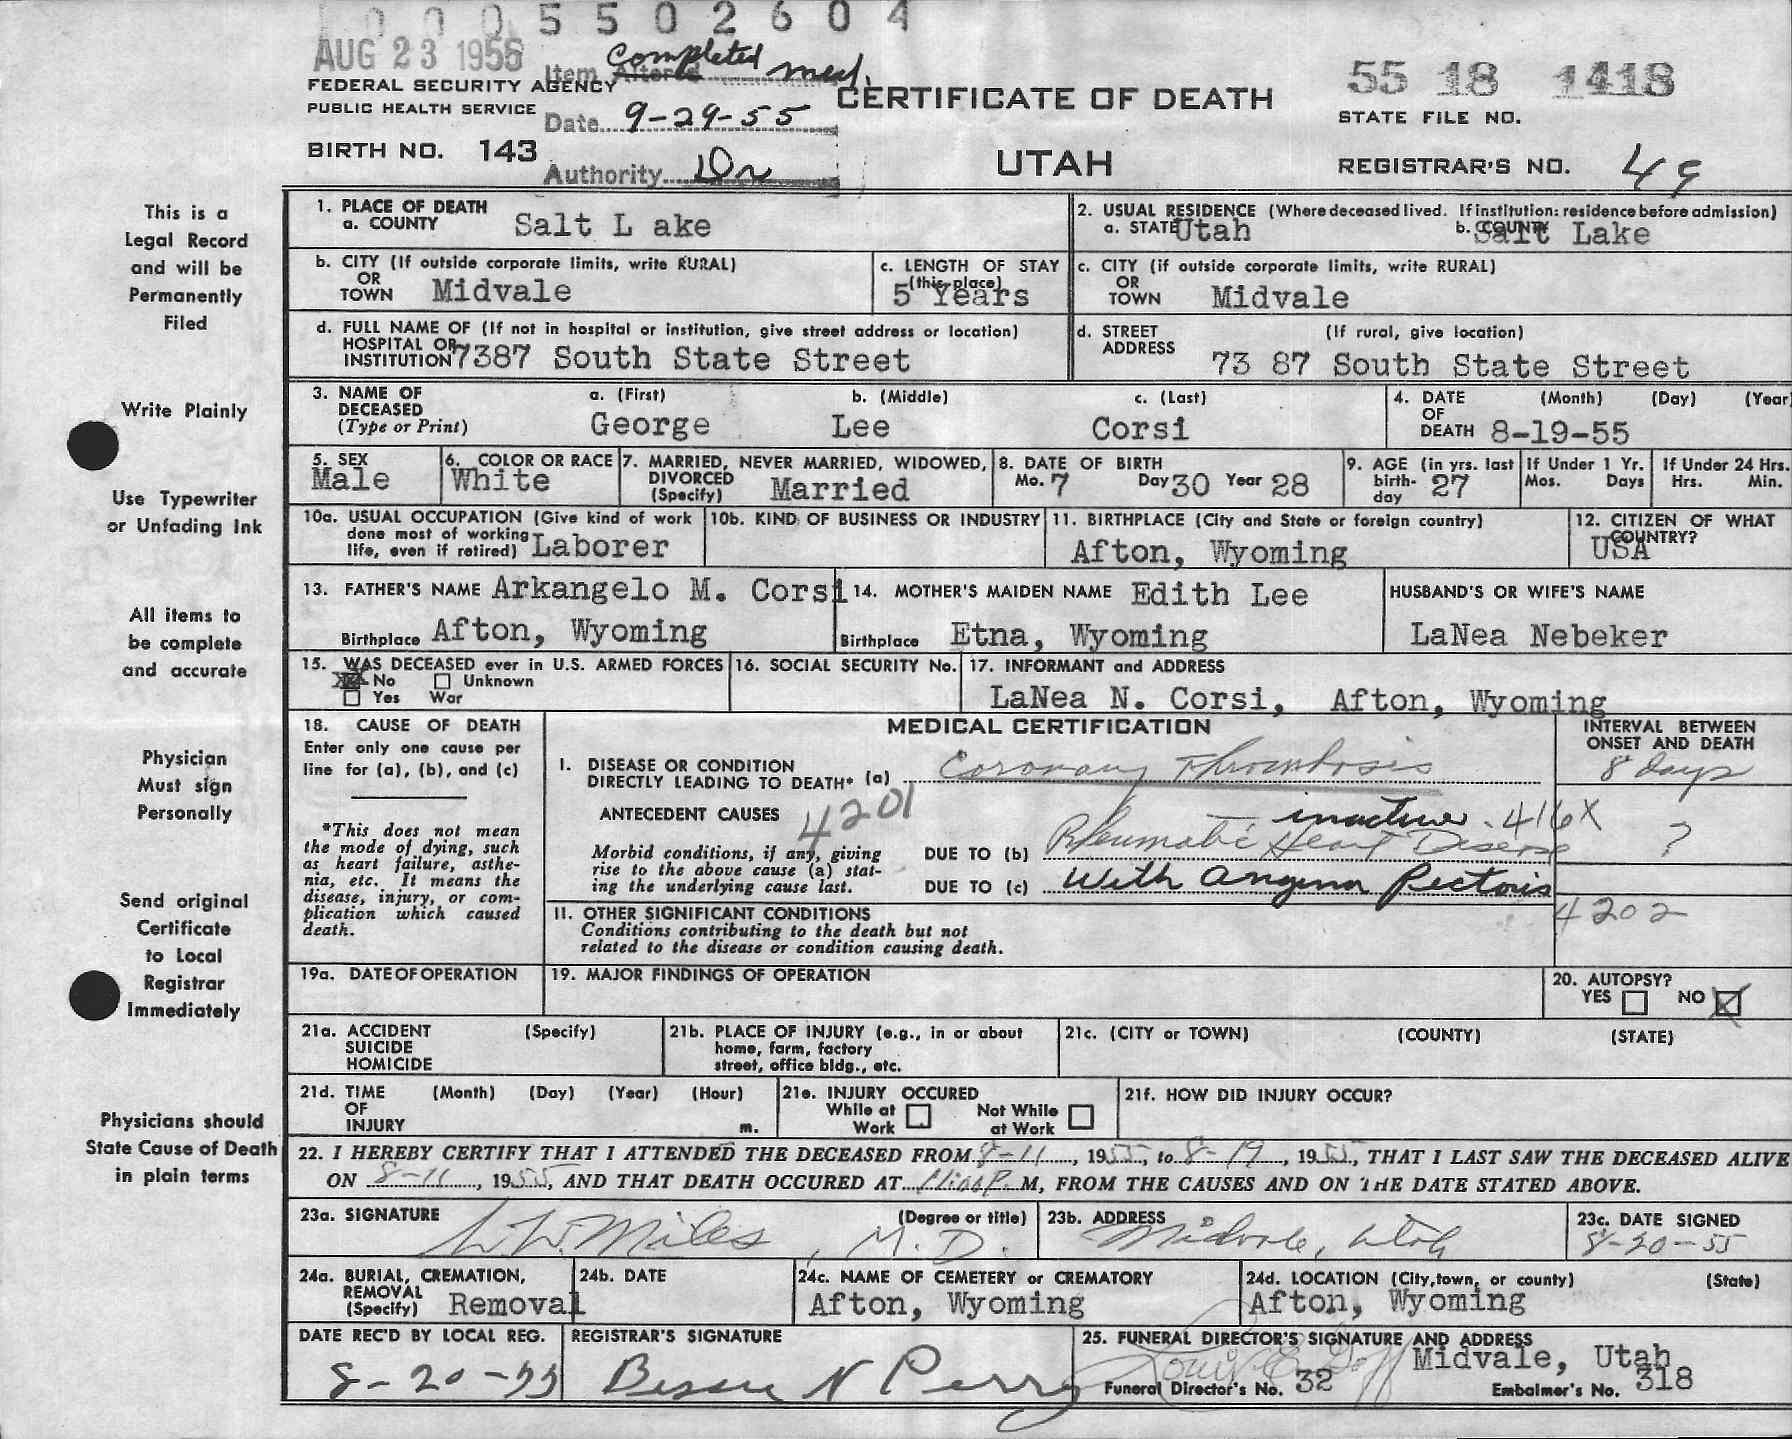 0005502604
AUG 23 1955
Item Altered Completed med.
FEDERAL SECURITY AGENCY
PUBLIC HEALTH SERVICE
Date 9-29-55
CERTIFICATE OF DEATH
55 18 1418
STATE FILE NO.
BIRTH NO. 143
Authority Dr
UTAH
REGISTRAR'S NO. 49
This is a
Legal Record
and will be
Permanently
Filed
Write Plainly
Use Typewriter
or Unfading Ink
All items to
be complete
and accurate
Physician
Must sign
Personally
Send original
Certificate
to Local
Registrar
Immediately
Physicians should
State Cause of Death
in plain terms
1. PLACE OF DEATH
a. COUNTY Salt L ake
2. USUAL RESIDENCE (Where deceased lived. If institution: residence before admission)
a. STATE Utah b. COUNTY Salt Lake
b. CITY (If outside corporate limits, write RURAL)
OR
TOWN Midvale
c. LENGTH OF STAY
(this place)
5 Years
c. CITY (if outside corporate limits, write RURAL)
OR
TOWN Midvale
d. FULL NAME OF (If not in hospital or institution, give street address or location)
HOSPITAL OR
INSTITUTION 7387 South State Street
d. STREET (If rural, give location)
ADDRESS 73 87 South State Street
3. NAME OF
DECEASED
(Type or Print)
a. (First) b. (Middle) c. (Last)
George Lee Corsi
4. DATE (Month) (Day) (Year
OF
DEATH 8-19-55
5. SEX
Male
6. COLOR OR RACE
White
7. MARRIED, NEVER MARRIED, WIDOWED,
DIVORCED
(Specify) Married
8. DATE OF BIRTH
Mo. 7 Day 30 Year 28
9. AGE (in yrs. last
birth-
day 27
If Under 1 Yr.
Mos. Days
If Under 24 Hrs.
Hrs. Min.
10a. USUAL OCCUPATION (Give kind of work
done most of working
life, even if retired) Laborer
10b. KIND OF BUSINESS OR INDUSTRY
11. BIRTHPLACE (City and State or foreign country)
Afton, Wyoming
12. CITIZEN OF WHAT
COUNTRY?
USA
13. FATHER'S NAME Arkangelo M. Corsi
Birthplace Afton, Wyoming
14. MOTHER'S MAIDEN NAME Edith Lee
Birthplace Etna, Wyoming
HUSBAND'S OR WIFE'S NAME
LaNea Nebeker
15. WAS DECEASED ever in U.S. ARMED FORCES
No Unknown
Yes War
16. SOCIAL SECURITY No.
17. INFORMANT and ADDRESS
LaNea N. Corsi, Afton, Wyoming
18. CAUSE OF DEATH
Enter only one cause per
line for (a), (b), and (c)
*This does not mean
the mode of dying, such
as heart failure, asthe-
nia, etc. It means the
disease, injury, or com-
plication which caused
death.
MEDICAL CERTIFICATION
INTERVAL BETWEEN
ONSET AND DEATH
I. DISEASE OR CONDITION
DIRECTLY LEADING TO DEATH* (a) Coronary Thrombosis 8 days
ANTECEDENT CAUSES 4201
inactive. 416X
Morbid conditions, if any, giving
rise to the above cause (a) stat-
ing the underlying cause last.
DUE TO (b) Rheumatic Heart Disease ?
DUE TO (c) With Angina Pectoris
4202
II. OTHER SIGNIFICANT CONDITIONS
Conditions contributing to the death but not
related to the disease or condition causing death.
19a. DATE OF OPERATION
19. MAJOR FINDINGS OF OPERATION
20. AUTOPSY?
YES NO X
21a. ACCIDENT (Specify)
SUICIDE
HOMICIDE
21b. PLACE OF INJURY (e.g., in or about
home, farm, factory
street, office bldg., etc.
21c. (CITY or TOWN) (COUNTY) (STATE)
21d. TIME (Month) (Day) (Year) (Hour)
OF
INJURY m.
21e. INJURY OCCURED
While at Not While
Work at Work
21f. HOW DID INJURY OCCUR?
22. I HEREBY CERTIFY THAT I ATTENDED THE DECEASED FROM 8-11, 1955, to 8-19, 1955, THAT I LAST SAW THE DECEASED ALIVE
ON 8-11, 1955, AND THAT DEATH OCCURED AT P. M, FROM THE CAUSES AND ON THE DATE STATED ABOVE.
23a. SIGNATURE (Degree or title)
Miles, M.D.
23b. ADDRESS
Midvale, Utah
23c. DATE SIGNED
8-20-55
24a. BURIAL, CREMATION,
REMOVAL
(Specify) Removal
24b. DATE
24c. NAME OF CEMETERY or CREMATORY
Afton, Wyoming
24d. LOCATION (City, town, or county) (State)
Afton, Wyoming
DATE REC'D BY LOCAL REG.
8-20-55
REGISTRAR'S SIGNATURE
Bessie N Perry
25. FUNERAL DIRECTOR'S SIGNATURE AND ADDRESS
Louis E Goff Midvale, Utah
Funeral Director's No. 32 Embalmer's No. 318